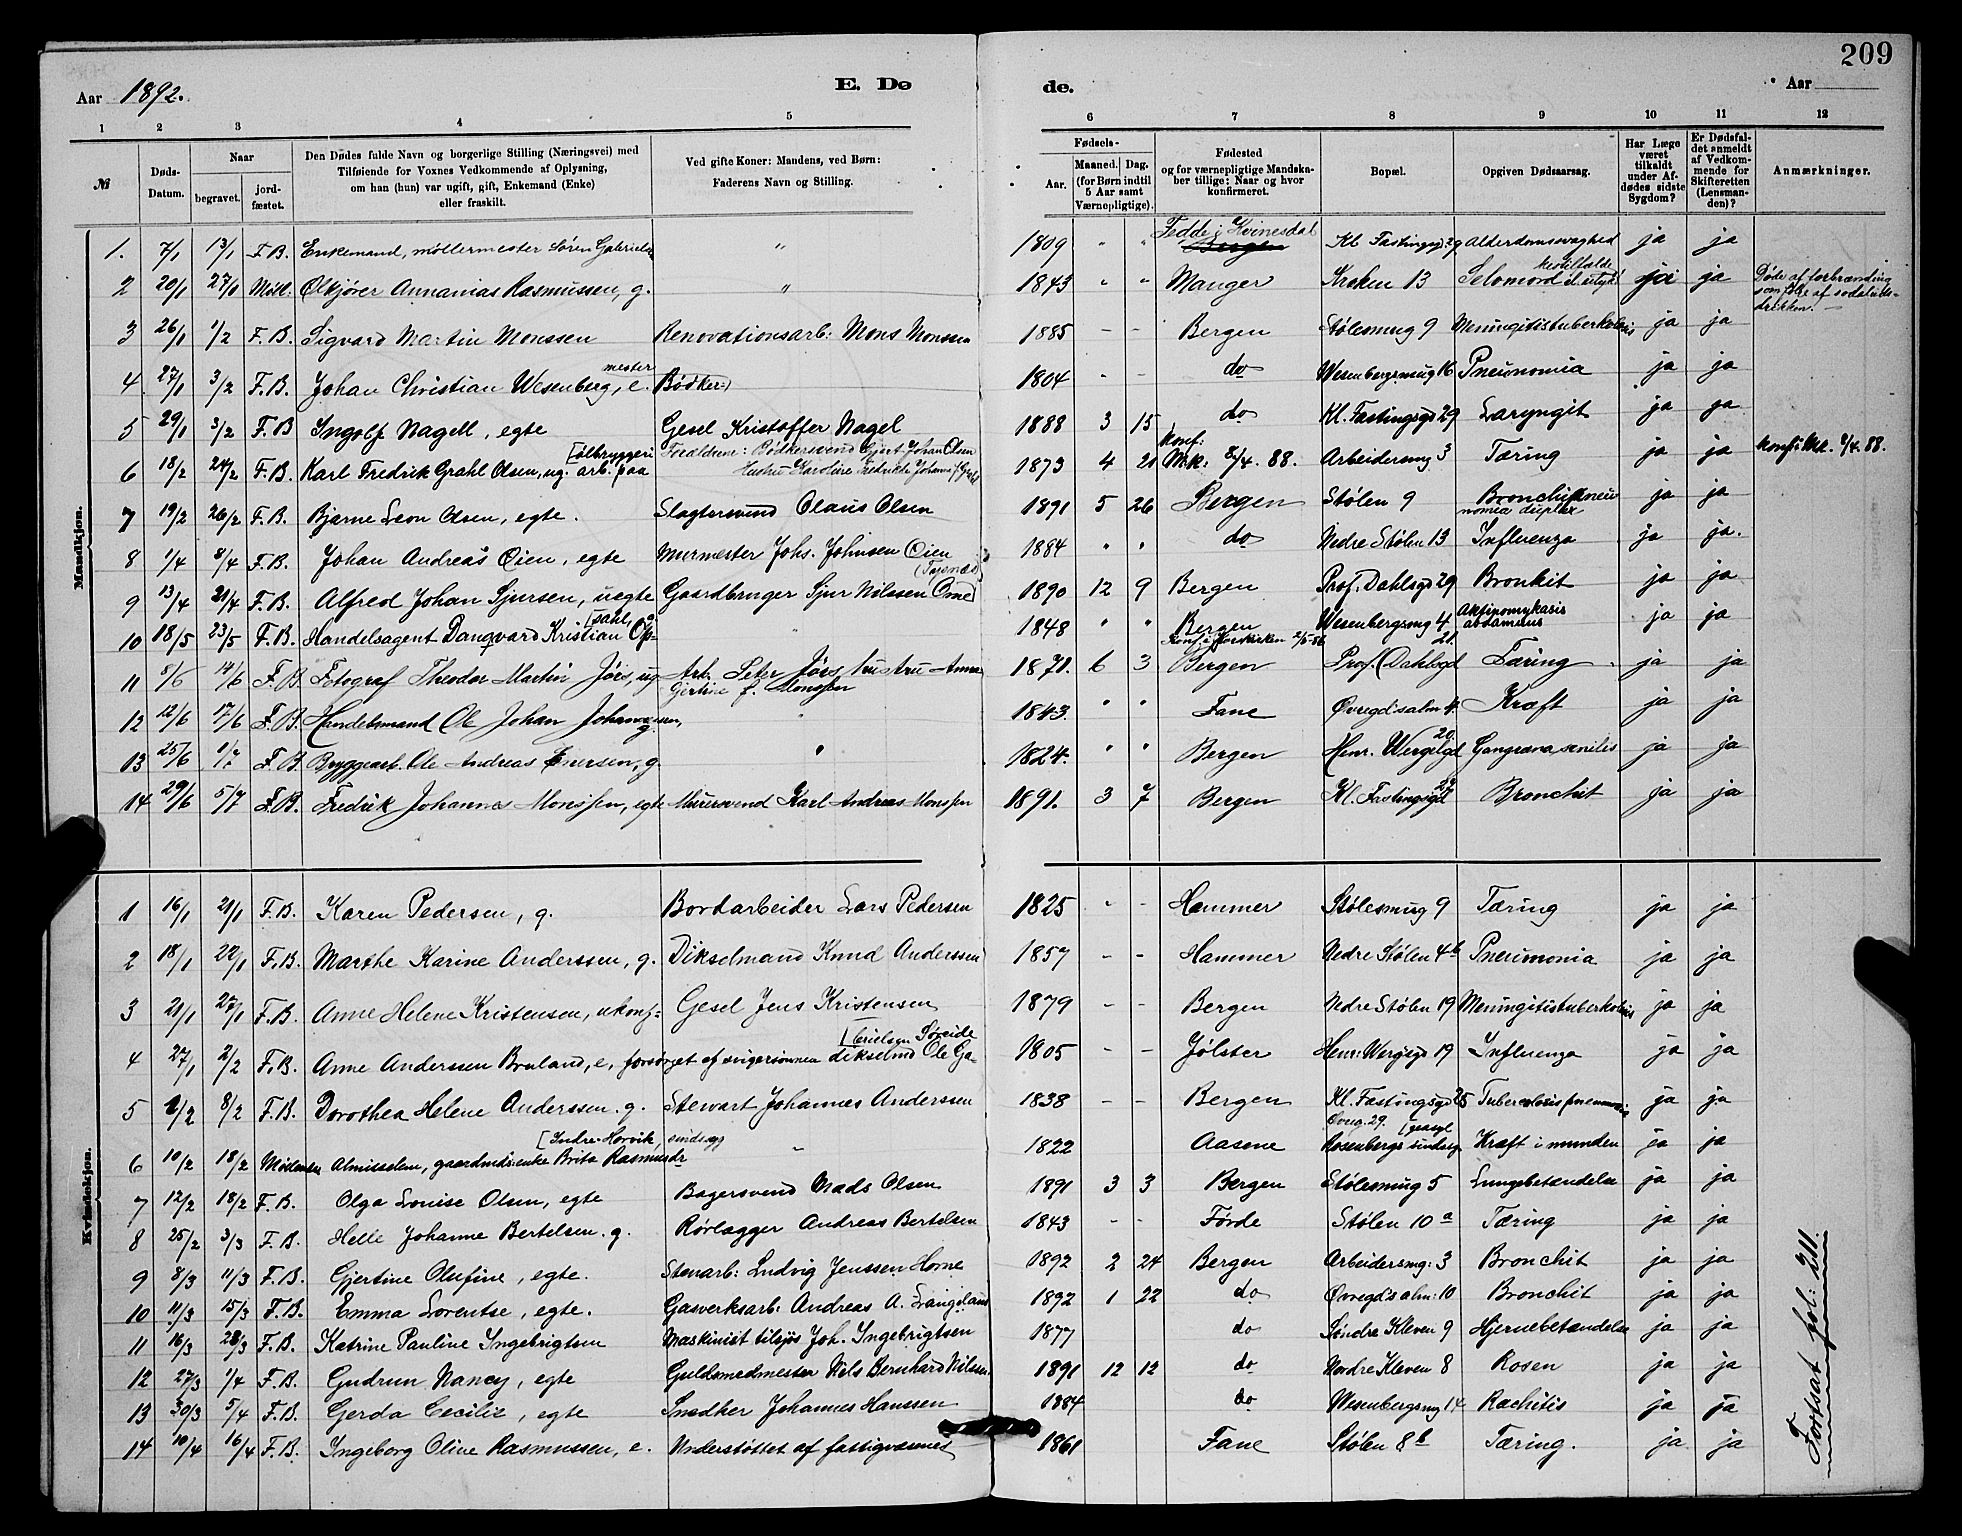 209
Aar 1892.
E. Dø
de.
Aar
1 2 3 4 5 6 7 8 9 10 11 12
№
Døds-Datum.
Naar
begravet.
jordfæstet.
Den Dødes fulde Navn og borgerlige Stilling (Næringsvei) med Tilføiende for Voxnes Vedkommende af Oplysning, om han (hun) var ugift, gift, Enkemand (Enke) eller fraskilt.
Ved gifte Koner: Mandens, ved Børn: Faderens Navn og Stilling.
Fødsels-
Aar.
Maaned. Dag.
(for Børn indtil 5 Aar samt Værnepligtige).
Fødested og for værnepligtige Mandskaber tillige: Naar og hvor konfirmeret.
Bopæl.
Opgiven Dødsaarsag.
Har Læge været tilkaldt under Afdødes sidste Sygdom?
Er Dødsfaldet anmeldt af Vedkommende for Skifteretten (Lensmanden)?
Anmærkninger.
Mandkjøn.
1. 7/1 13/1 F.B. Enkemand, møllermester Sören Gabrielsen " 1809 " " Fedde i Kvinesdal Bergen Kl Fastingsgd 29 Alderdomssvaghed ja ja
2 20/1 27/1 Møll: Ølkjører Annanias Rasmussen, g. " 1843 " " Manger Kroken 13 Selvmord ja ja Døde af forbrænding som følge af
3 26/1 1/2 F.B. Sigvard Martin Monssen Renovationsarb: Mons Monssen 1885 - - Bergen Stølesmug 9 Meningitis tuberkulosis ja ja
4 27/1 3/2 F.B. Johan Christian Wesenberg, e. Bødkermester 1804 - - do Wesenbergsmug 16 Pneumonia ja ja
5 29/1 3/2 F.B Ingolf Nagell, egte Gesel Kristoffer Nagel 1888 3 15 do Kl. Fastingsgd 29 Laryngit ja ja
6 18/2 24/2 F.B. Karl Fredrik Grahl Olsen, ug. arb. paa [ølbryggeri Forældrene: Bødkersvend Gjert Johan Olsen Hustru Karoline Fredrikke Johanne f. Grahl 1873 4 21 Konf: Mk: 8/4. 88. Arbeidersmug 3 Tæring ja ja Konf. i Mk. 8/4. 88.
7 19/2 26/2 F.B. Bjarne Leon Olsen, egte. Slagtersvend Olaus Olsen 1891 5 26 Bergen Stølen 9 Bronchipneunomia duplex ja ja
8 1/4 8/4 F.B. Johan Andreas Øien, egte Murmester Johs. Johnsen Øien 1884 " " do Nedre Stølen 13 Influenza ja ja.
9 13/4 21/4 F.B. Alfred Johan Sjursen, uegte Gaardbruger Sjur Nilssen Ome 1890 12 9 Bergen Prof. Dahlsgd 29 Bronkit ja ja
10 18/5 23/5 F.B. Handelsagent Dangvard Kristian Op-[sahl, g. " 1848 " " Bergen Wesenbergsmg 4 Aktinomykasis abdaminus ja ja
11 8/6 14/6 F.B Fotograf Theodor Martin Jörs, ug Arb. Peter Jörs hustru Anna Gjertine f. Monssen 1871. 6 3 Konf. i Korskirken 2/5 86 Bergen Prof. Dahlsgd 21. Tæring ja ja
12 12/6 17/6 F.B. Handelsmand Ole Johan Johannesen, g. " 1843. " " Fane Øvregd's alm 4. Kræft ja ja
13 25/6 1/7 F.B Bryggearb. Ole Andreas Enersen, g. " 1824. " " Bergen Henr. Wergelgd 20. Gangræna senilis ja ja
14 29/6 5/7 F.B. Fredrik Johannes Monssen, egte Murersvend Karl Andreas Monssen 1891. 3 7 Bergen Kl. Fastingsgd 29 Bronchit ja ja
Kvindekjøn.
1 16/1 21/1 F.B. Karen Pedersen, g. Bordarbeider Lars Pedersen 1825 - - Hammer Stølesmug 9 Tæring ja ja
2 18/1 22/1 F.B. Marthe Karine Anderssen, g. Dikselmand Knud Anderssen 1857 - - Hammer Nedre Stølen 4b Pneumonia ja ja
3 21/1 27/1 F.B. Anne Helene Kristensen, ukonf: Gesel Jens Kristensen 1879 - - Bergen Nedre Stølen 19 Meningitis tuberkulosis ja ja
4 27/1 2/2 F.B. Anne Anderssen Bruland, e, forsørget af svigersønnen dikselmd Ole Ga-[brielsen Søreide 1805 - - Jølster Henr: Wergsgd 19 Influenza ja ja
5 2/2 8/2 F.B. Dorothea Helene Anderssen. g. Stewart Johannes Anderssen 1838 - - Bergen Kl. Fastingsgd 25 Tuberculosis pneumonia ja ja
6 10/2 18/2 Møllendal Almisselem, gaardmds enke Brita Rasmusdr [Indre-Horvik, sindssyg " 1822 Aasene Rosenbergs sindssygeasyl Kræft i munden ja ja
7 12/2 18/2 F.B. Olga Louise Olsen, egte Bagersvend Mads Olsen 1891 3 3 Bergen Stølesmug 5 Lungebetændelse ja ja
8 25/2 3/3 F.B. Helle Johanne Bertelsen. g. Rørlægger Andreas Bertelsen 1843 - - Førde Stølen 10a Tæring ja ja
9 8/3 11/3 F.B. Gjertine Olufine, egte. Stenarb: Ludvig Jenssen Horne 1892 2 24 Bergen Arbeidersmg: 3 Bronchit ja ja
10 11/3 15/3 F.B. Emma Lorentse, egte. Gasverksarb: Andreas A. Langeland 1892 1 22 do Øvregd's alm: 10 Bronchit ja ja
11 16/3 23/3 F.B. Katrine Pauline Ingebrigtsen Maskinist tilsjøs Joh. Ingebrigtsen 1877 do Søndre Kleven 9 Hjernebetændelse ja ja
12 27/3 1/4 F.B. Gudrun Nancy, egte Guldsmedmester Nils Bernhard Nilssen 1891 12 12 do Nordre Kleven 8 Rosen ja ja
13 30/3 5/4 F.B. Gerda Cecilie, egte Snedker Johannes Hanssen 1884 do Wesenbergsmug 14 Rachitis ja ja
14 10/4 16/4 F.B. Ingeborg Oline Rasmussen, e. Understøttet af fattigvæsenet 1861 Fane Stølen 8b Tæring. ja ja
Fortsat fol: 211.